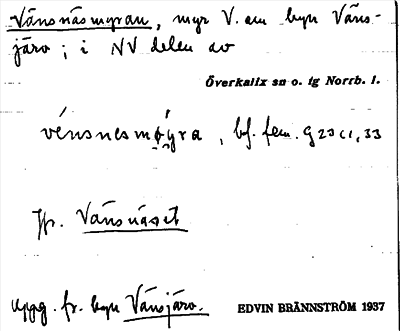 Vänsnäsmyran, myr V. om byn Väns-
järv; i NV delen av
Överkalix sn o. tg Norrb. l.
vénsnesmy̨ra, bf. fem. G 23 C1, 33
Jfr. Vänsnäset
Uppg. fr. byn Vänsjärv.
EDVIN BRÄNNSTRÖM 1937